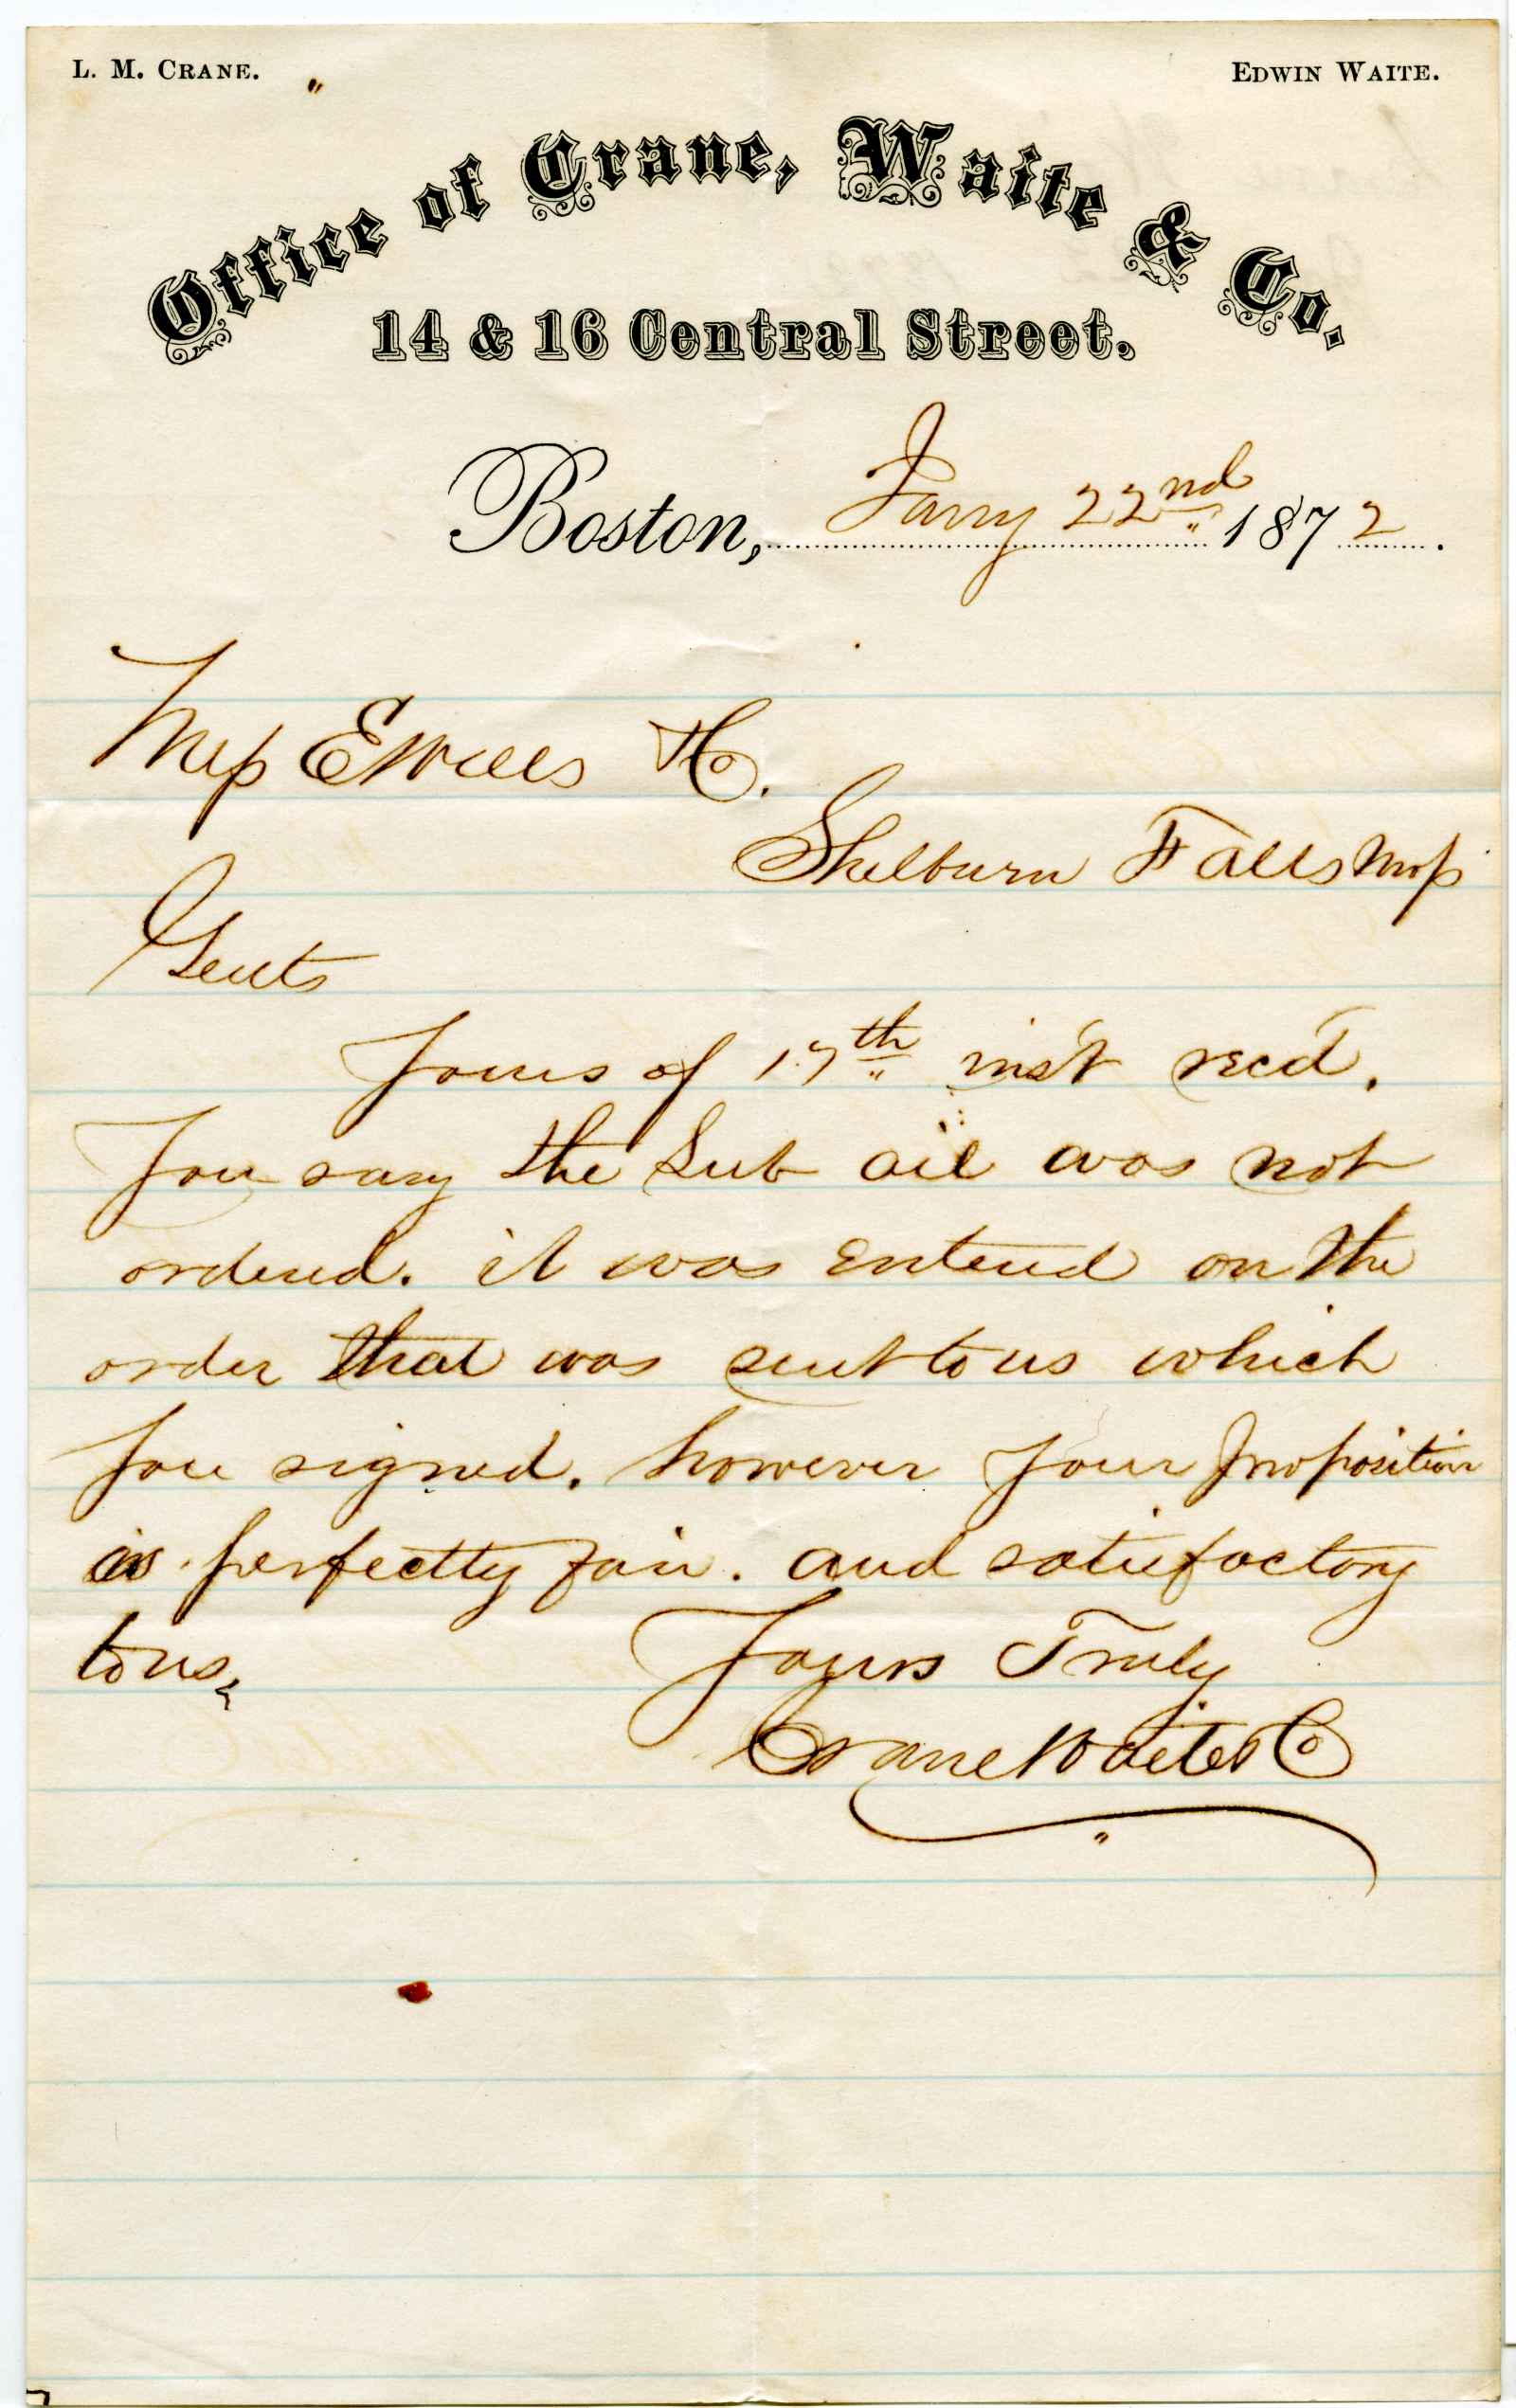 L. M. CRANE.
EDWIN WAITE.
Office of Crane, Waite & Co.
14 & 16 Central Street.
Boston, Jany 22nd 1872.
Mess
Shelburn Falls Mass
Gents
Yours of 17th inst recd.
You say the Lub oil was not
ordered. it was entered on the
order that was sent to us which
you signed. however your proposition
is perfectly fair. and satisfactory
to us.
Yours Truly
Crane Waite & Co